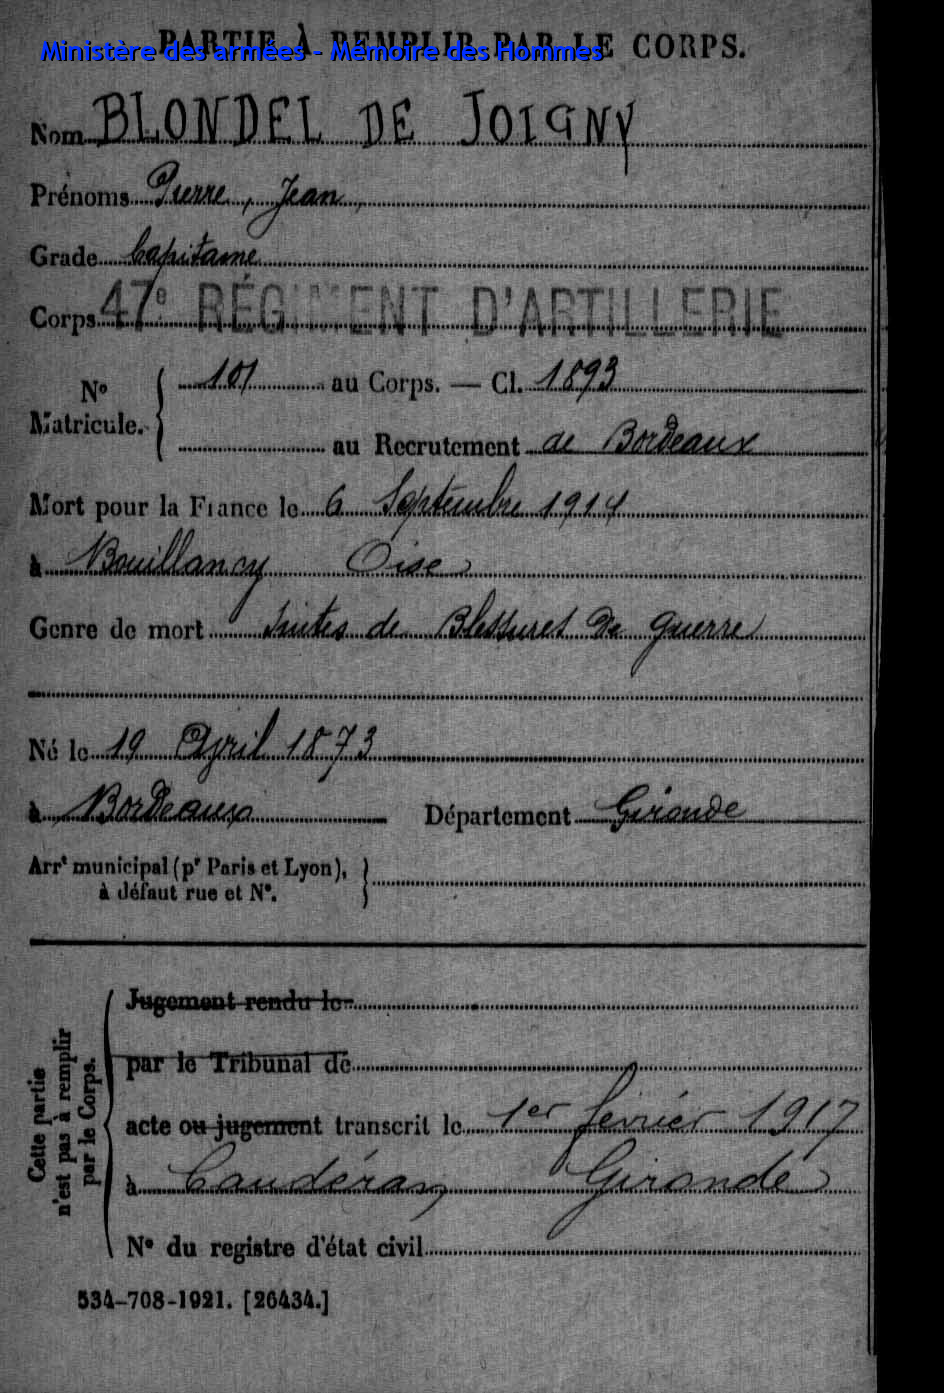 PARTIE À REMPLIR PAR LE CORPS.
Ministère des armées - Mémoire des Hommes
Nom BLONDEL DE JOIGNY
Prénoms Pierre, Jean,
Grade Capitaine
Corps 47e RÉGIMENT D'ARTILLERIE
No Matricule. 101 au Corps. — Cl. 1893
au Recrutement de Bordeaux
Mort pour la France le 6 Septembre 1914
à Bouillancy Oise
Genre de mort Suites de Blessures de guerre
Né le 19 Avril 1873
à Bordeaux Département Gironde
Arrt municipal (pr Paris et Lyon),
à défaut rue et No.
Cette partie
n'est pas à remplir
par le Corps.
Jugement rendu le
par le Tribunal de
acte ou jugement transcrit le 1er février 1917
à Caudéran Gironde
No du registre d'état civil
534-708-1921. [26434.]